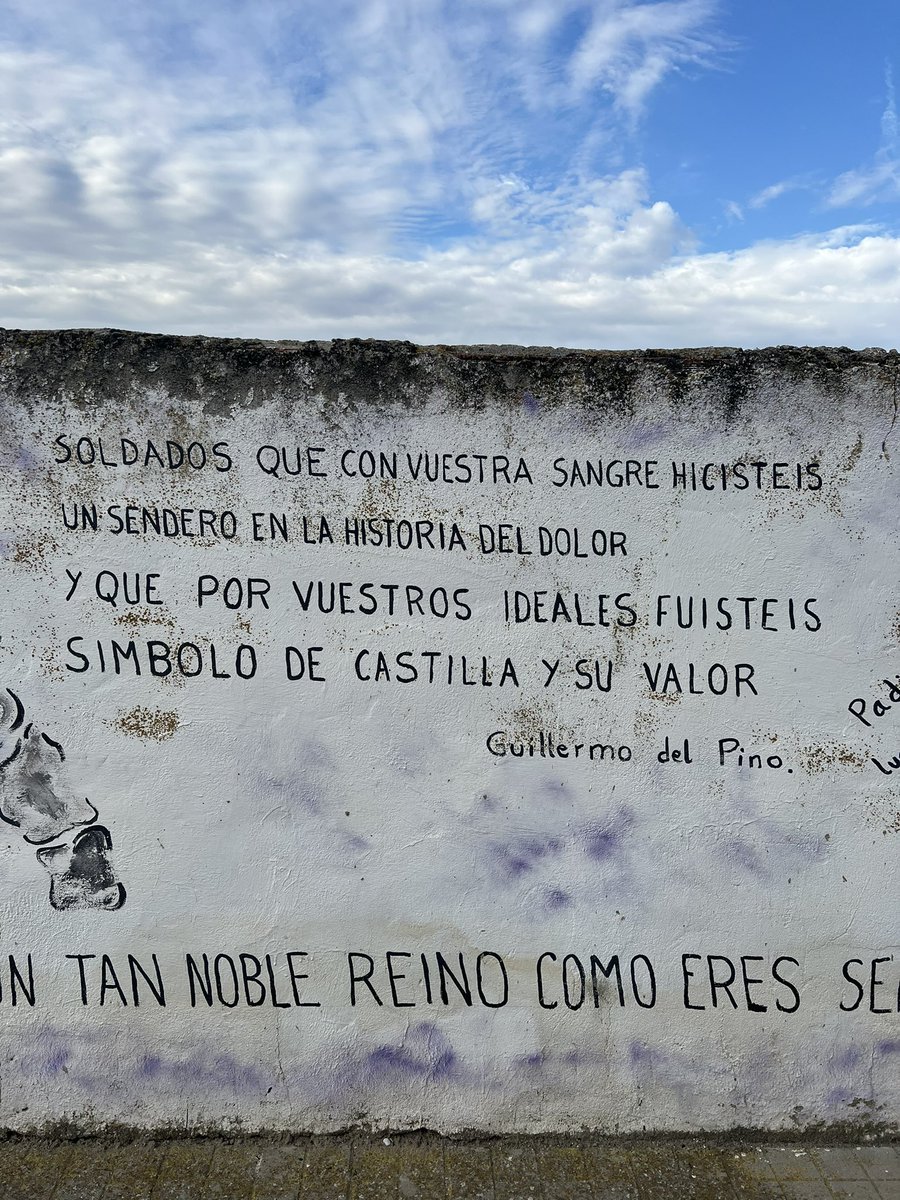 SOLDADOS QUE CON VUESTRA SANGRE HICISTEIS
UN SENDERO EN LA HISTORIA DEL DOLOR
Y QUE POR VUESTROS IDEALES FUISTEIS
SIMBOLO DE CASTILLA Y SU VALOR
Guillermo del Pino.
TAN NOBLE REINO COMO ERES